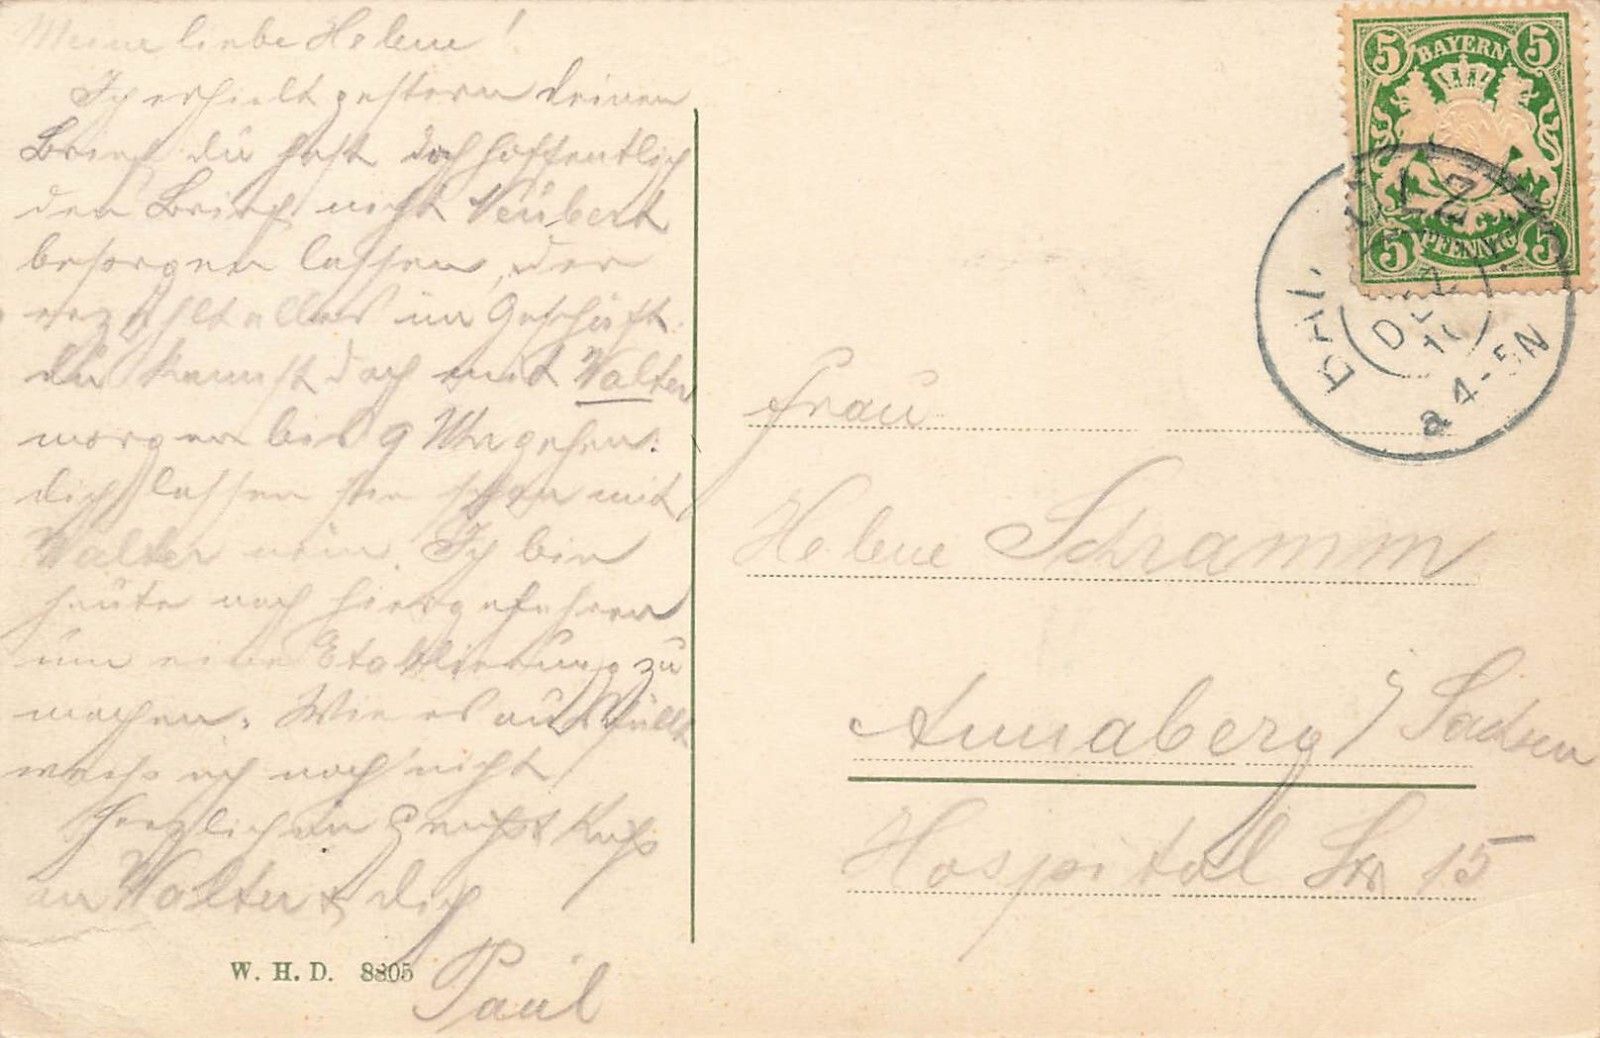 Meine liebe Helene!
Ich erhielt gestern deinen
Brief, du hast doch hoffentlich
den Brief nicht Neubert
besorgen lassen, der
erzählt alles im Geschäft.
du kannst doch mit Walter
morgen bis 9 Uhr gehen.
dich lassen sie schon mit
Walter nein. Ich bin
heute nach hier gefahren
um eine Etablierung zu
machen. Wie es ausfällt
weiss ich noch nicht
Herzlichen Gruss & Kuss
an Walter & dich
Paul
W. H. D. 8805
5 BAYERN 5
5 PFENNIG 5
4-5N
Frau
Helene Schramm
Annaberg / Sachsen
Hospital Str 15